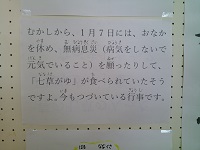 むかしから、1月7日には、おなか
を休め、無病息災(病気をしないで
元気でいること)を願ったりして、
「七草がゆ」が食べられていたそう
ですよ。今もつづいている行事です。